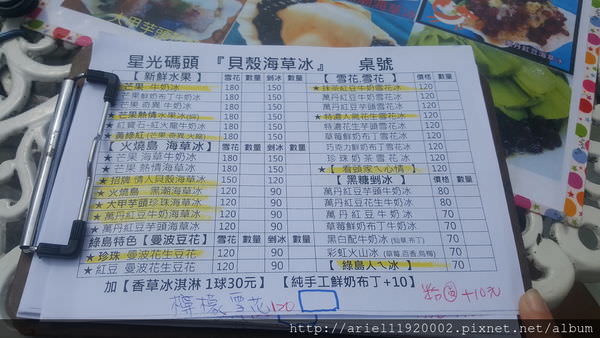 大甲芋頭
星光碼頭 『貝殼海草冰』 桌號
【 新鮮水果 】 雪花 數量 剉冰 數量
★ 芒果 牛奶冰 180 150
芒果鮮奶布丁牛奶冰 180 150
芒果 奇異 牛奶冰 180 150
★ 芒果熱情水果冰 180 150
★ 紅寶石-紅火龍牛奶冰 180 150
★ 黃綠紅(芒果.奇異.火龍) 180 150
【 火燒島 海草冰 】 雪花 數量 剉冰 數量
★ 芒果 海草牛奶冰 180 150
★ 芒果 熱情海草冰 180 150
★ 招牌 情人貝殼海草冰 150 120
★ 火燒島 黑潮海草冰 120 90
★ 大甲芋頭珍珠海草冰 120 90
★ 萬丹紅豆牛奶海草冰 120 90
綠島特色【曼波豆花】 雪花 數量 剉冰 數量
★ 珍珠 曼波花生豆花 120 90
★ 紅豆 曼波花生豆花 120 90
【 雪花.雪花 】 價格 數量
★ 抹茶紅豆牛奶雪花冰 120
萬丹紅豆牛奶雪花冰 120
★ 特濃人氣花生雪花冰 120
特濃花生芋頭雪花冰 120
草莓鮮奶布丁雪花冰 120
巧克力鮮奶布丁雪花冰 120
珍珠奶茶雪花冰 120
★ 【 看頭家ㄟ心情 】 120
【 黑糖剉冰 】 價格 數量
萬丹紅豆芋頭牛奶冰 80
萬丹紅豆花生牛奶冰 80
萬丹紅豆牛奶冰 70
草莓鮮奶布丁牛奶冰 70
黑白配牛奶冰(仙草.布丁) 70
彩虹火山冰(草莓.百香.烏梅) 70
★ 【 綠島人ㄟ冰 】 70
加【香草冰淇淋 1球30元】 【純手工鮮奶布丁+10】
檸檬雪花120
粉圓+10元
http://ariel11920002.pixnet.net/album